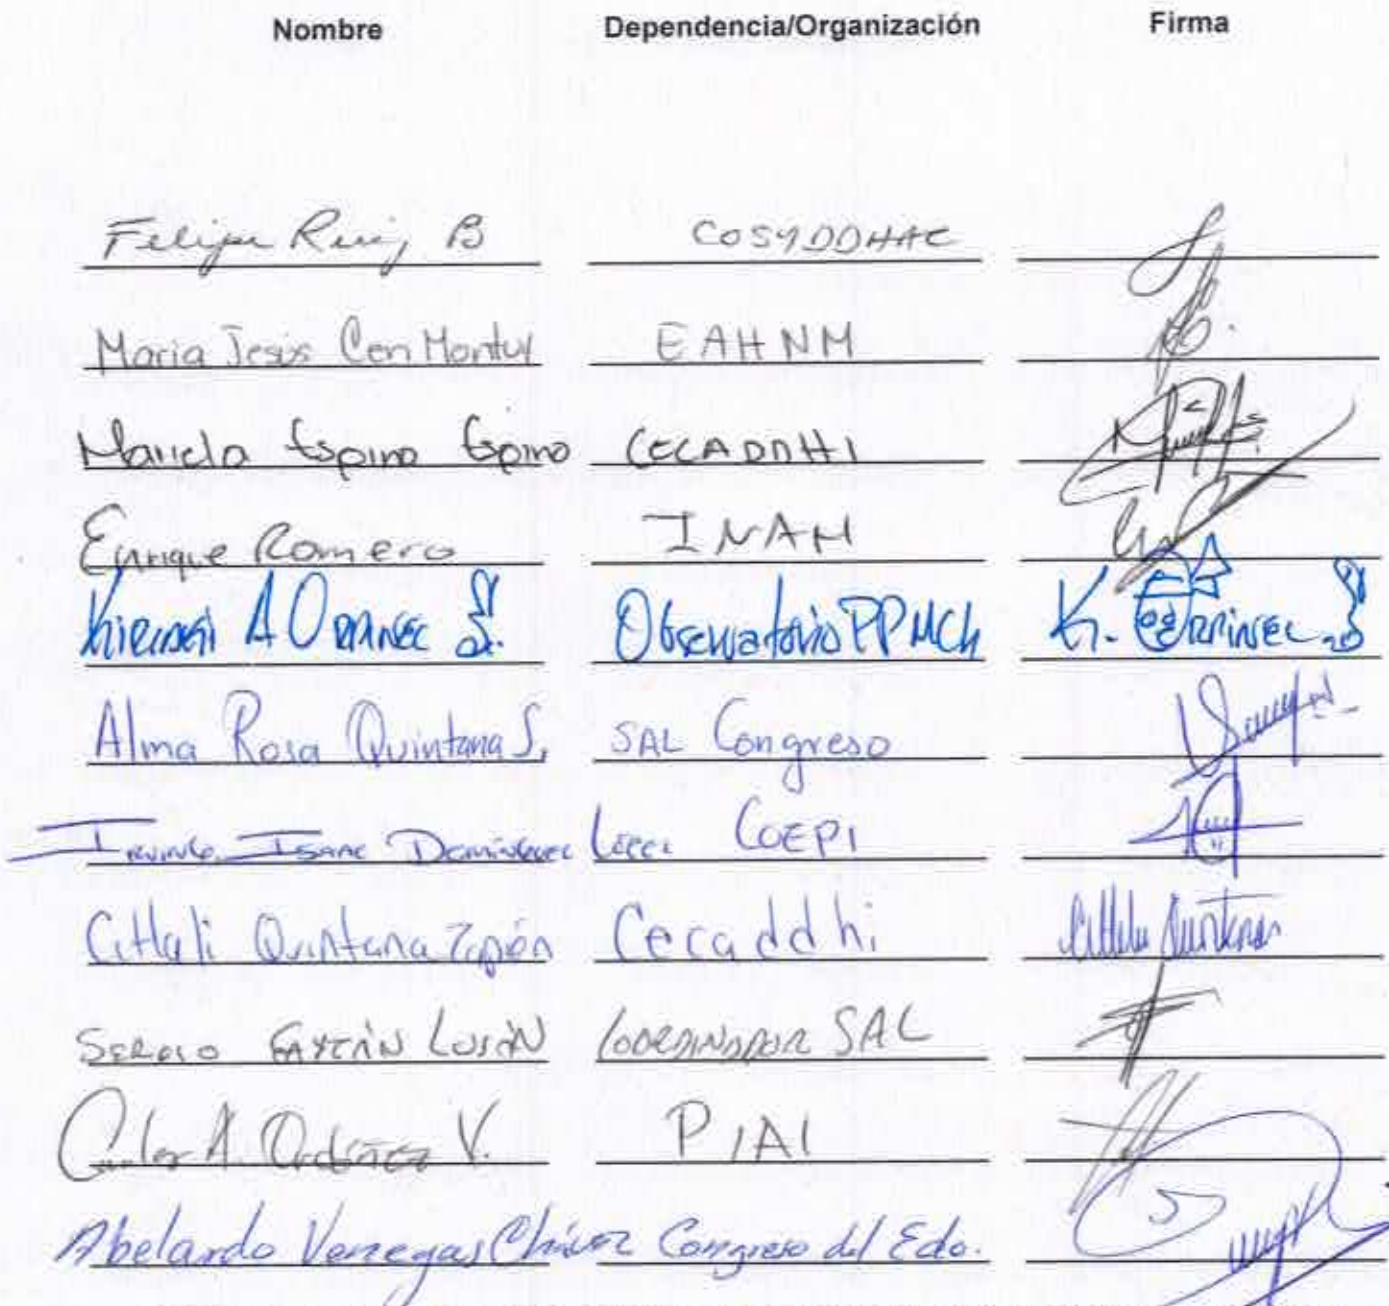 Nombre Dependencia/Organización Firma
Felipe Ruiz B COSYDDHAC
Maria Jesús Cen Montuy EAHNM
Mariela Espino Espino CECADDHI
Enrique Romero INAH
A Observatorio PPMCh K.
Alma Rosa Quintana S. SAL Congreso
Irving Isaac Domínguez López COEPI
Citlali Quintana Zapién Cecaddhi Citlali Quintana
Sergio Gaytán Luján Coordinador SAL
Carlos A. Ordóñez V. PIAI
Abelardo Venegas Chávez Congreso del Edo.